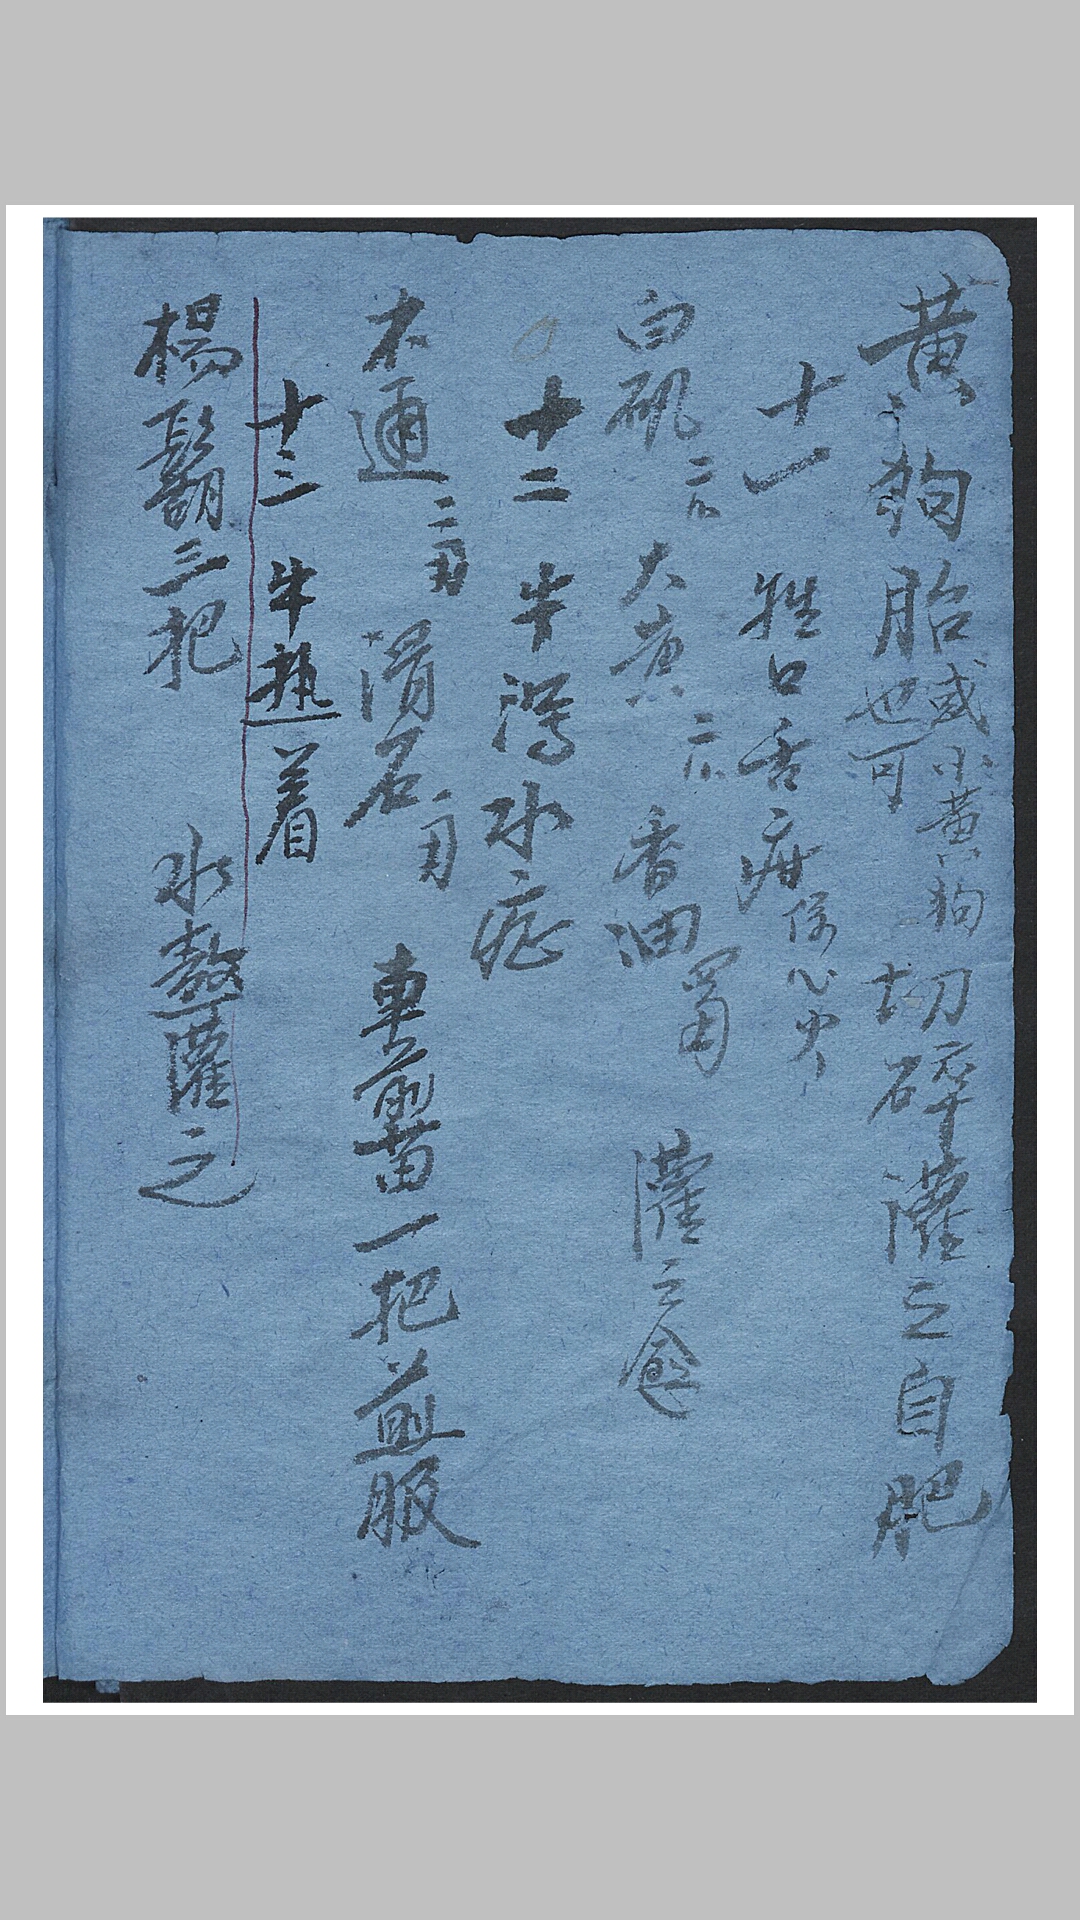 黄狗胎或小黄狗也可切碎灌之自肥
十一 牲口舌疳係心火
白矾二个大黄二个香油 灌之愈
十二 牛瀉水症
木通二 滑石 車前苗一把煎服
十三 牛熱着
楊鬍三把 水熬灌之